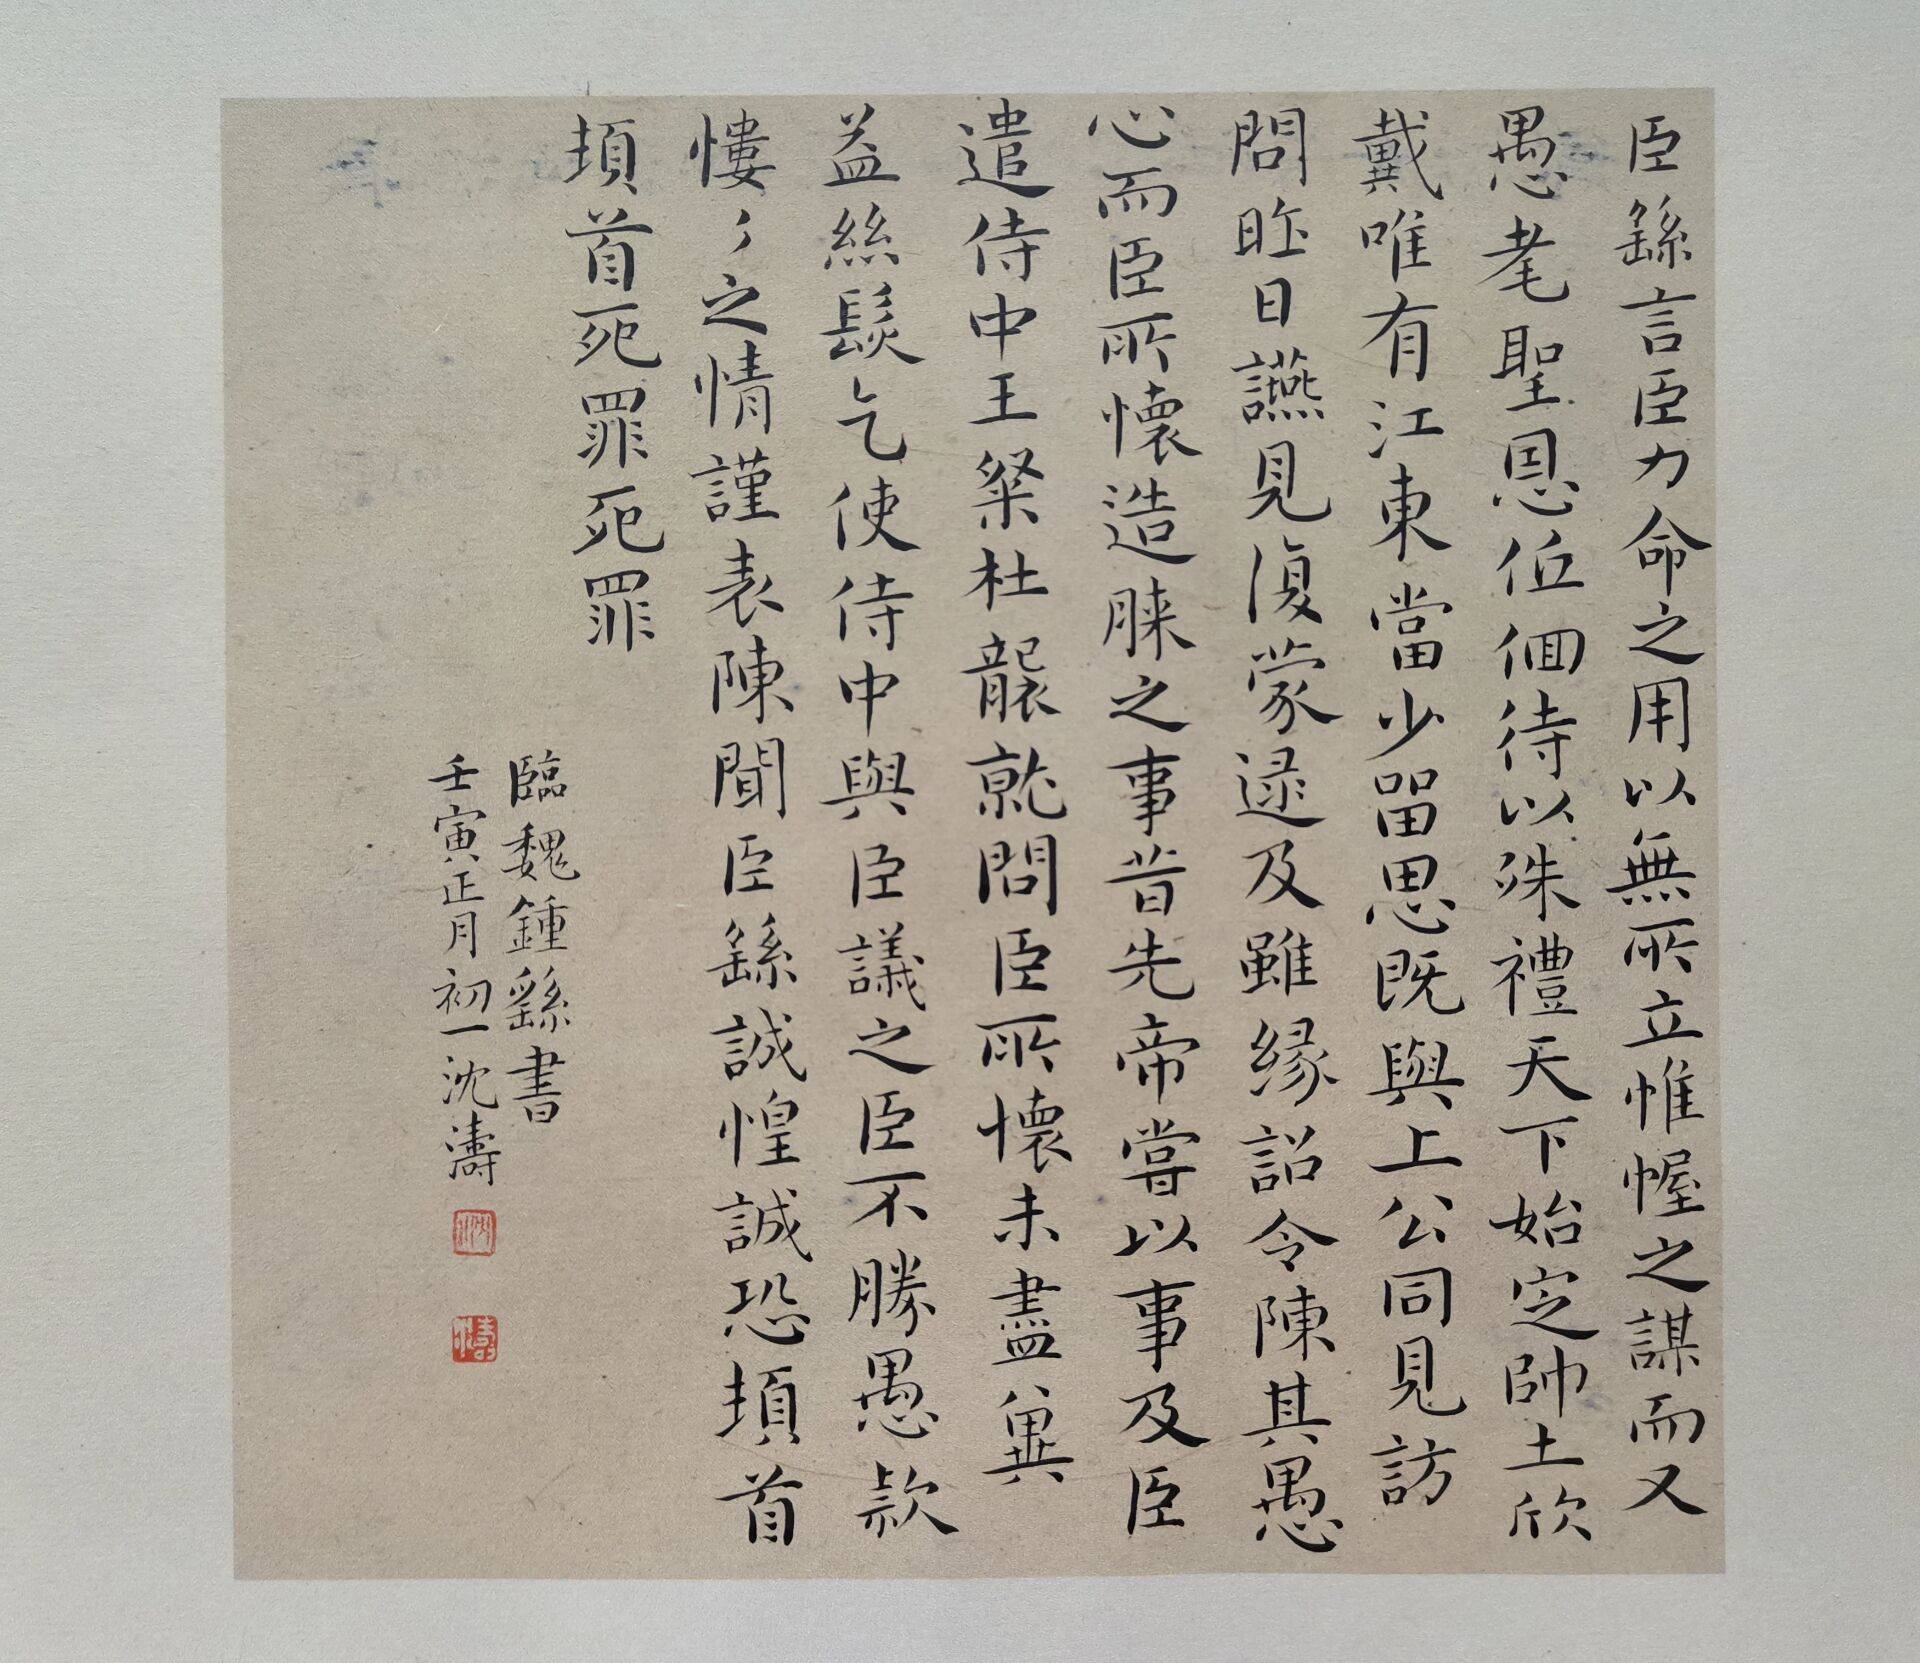 臣繇言臣力命之用以無所立惟幄之謀而又
愚耄聖恩低佪待以殊禮天下始定帥土欣
戴唯有江東當少留思既與上公同見訪
問昨日讌見復蒙逮及雖緣詔令陳其愚
心而臣所懷造膝之事昔先帝嘗以事及臣
遣侍中王粲杜襲就問臣所懷未盡冀
益絲髮乞使侍中與臣議之臣不勝愚款
慺々之情謹表陳聞臣繇誠惶誠恐頓首
頓首死罪死罪
臨魏鍾繇書
壬寅正月初一沈濤